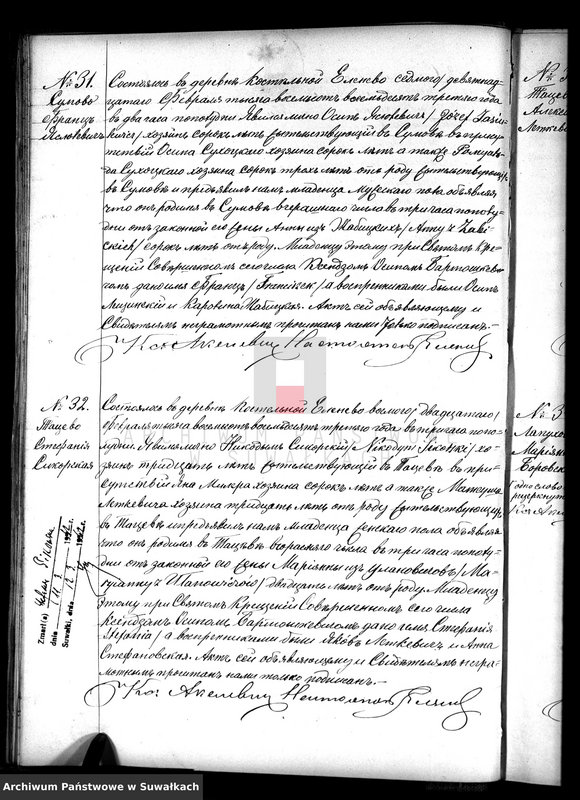 № 31.
Сумово
Францъ
Яслюкевичъ
Состоялось въ деревнѣ костельной Еленево седмого/девятнад-
цатаго Февраля тысяча восемьсотъ восемьдесятъ третьяго года
въ два часа пополудни Явился лично Осипъ /Józef
хозяинъ сорокъ лѣтъ жительствующій въ Сумовѣ въ присут-
ствіи Осипа Сухоцкаго хозяина сорокъ лѣтъ а также Ромуаль-
да Сухоцкаго хозяина сорокъ трехъ лѣтъ отъ роду жительствующихъ
въ Сумовѣ и предъявилъ намъ младенца мужескаго пола объявляя
что онъ родился въ Сумовѣ вчерашняго числа въ три часа пополу-
дни отъ законной его жены Анны изъ Жабицкихъ /Anny z Żabi-
ckich/ сорокъ лѣтъ отъ роду. Младенцу этому при Святомъ Кре-
щеніи Совершенномъ сего числа Ксендзомъ Осипомъ Бартошкеви-
чемъ дано имя Францъ /Franciszek/ а воспріемниками были Осипъ
и Каролина Жабицкая. Актъ сей объявляющему и
Свидѣтелямъ неграмотнымъ прочитанъ нами только подписанъ.-
Кс: Акелевич Настоятель
№ 32.
Тацево
Стефанія
Сикорская
Состоялось въ деревнѣ Костельной Еленево восьмого/двадцатаго/
Февраля тысяча восемьсотъ восемьдесятъ третьяго года въ три часа попо-
лудни. Явился лично Никодымъ Сикорскій /Nikodym Sikorski/ хо-
зяинъ тридцать лѣтъ жительствующій въ Тацевѣ въ при-
сутствіи Яна хозяина сорокъ лѣтъ а также Матеуша
Леткевича хозяина тридцать лѣтъ отъ роду жительствующихъ
въ Тацевѣ и предъявилъ намъ младенца женскаго пола объявляя
что онъ родился въ Тацевѣ вчерашняго числа въ три часа пополу-
дни отъ законной его жены Маріянны изъ Улановичовъ /Ma-
ryanny z Ułanowiczów/ двадцать лѣтъ отъ роду Младенцу
этому при Святомъ Крещеніи Совершенномъ сего числа
Ксендзомъ Осипомъ Бартошкевичемъ дано имя Стефанія
/Stefania/ а воспріемниками были Яковъ Леткевичъ и Анна
Стефановская. Актъ сей объявляющему и Свидѣтелямъ негра-
мотнымъ прочитанъ нами только подписанъ.-
Кс: Акелевич Настоятель
Zmarł(a)
dnia
Suwałki, dnia
№ 3
Тацево
Алекса
Леткеви
№ 3
Маріян
Боровск
Archiwum Państwowe w Suwałkach